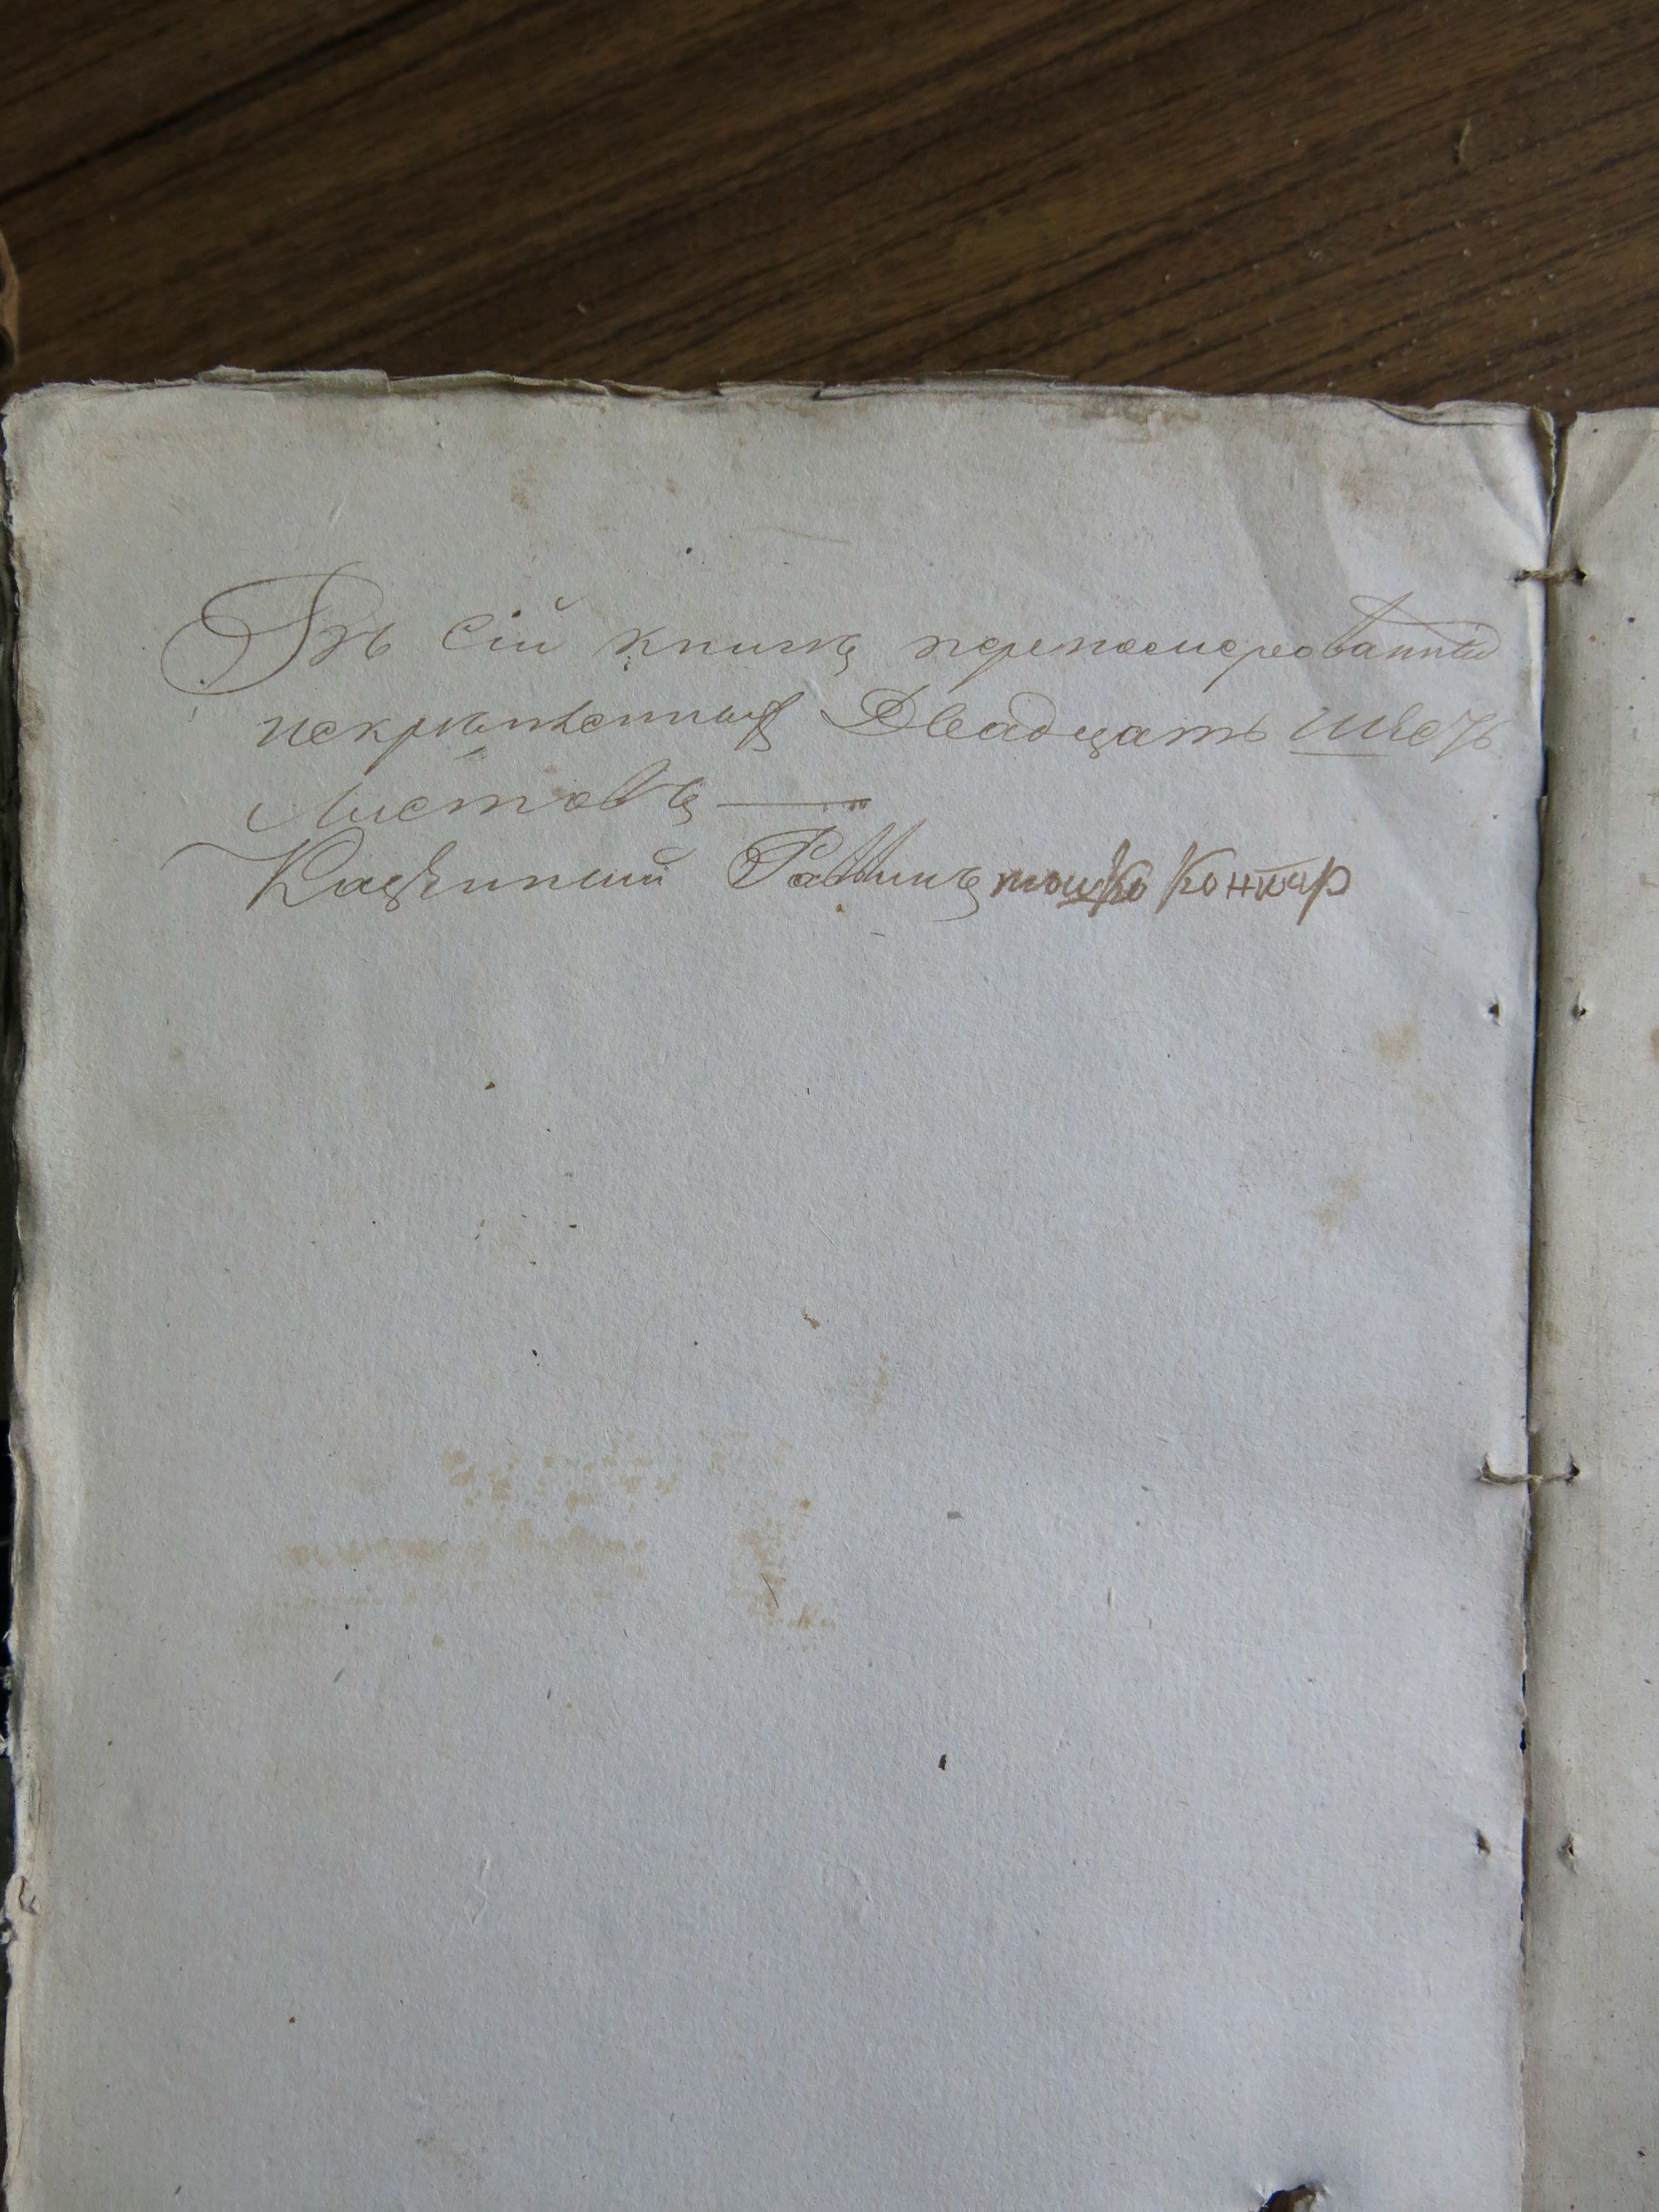 Въ Сій книгѣ перномерованныхъ
искрѣпленныхъ Двадцать шесть
Листовъ
Казенный Раввинъ мошко Контар